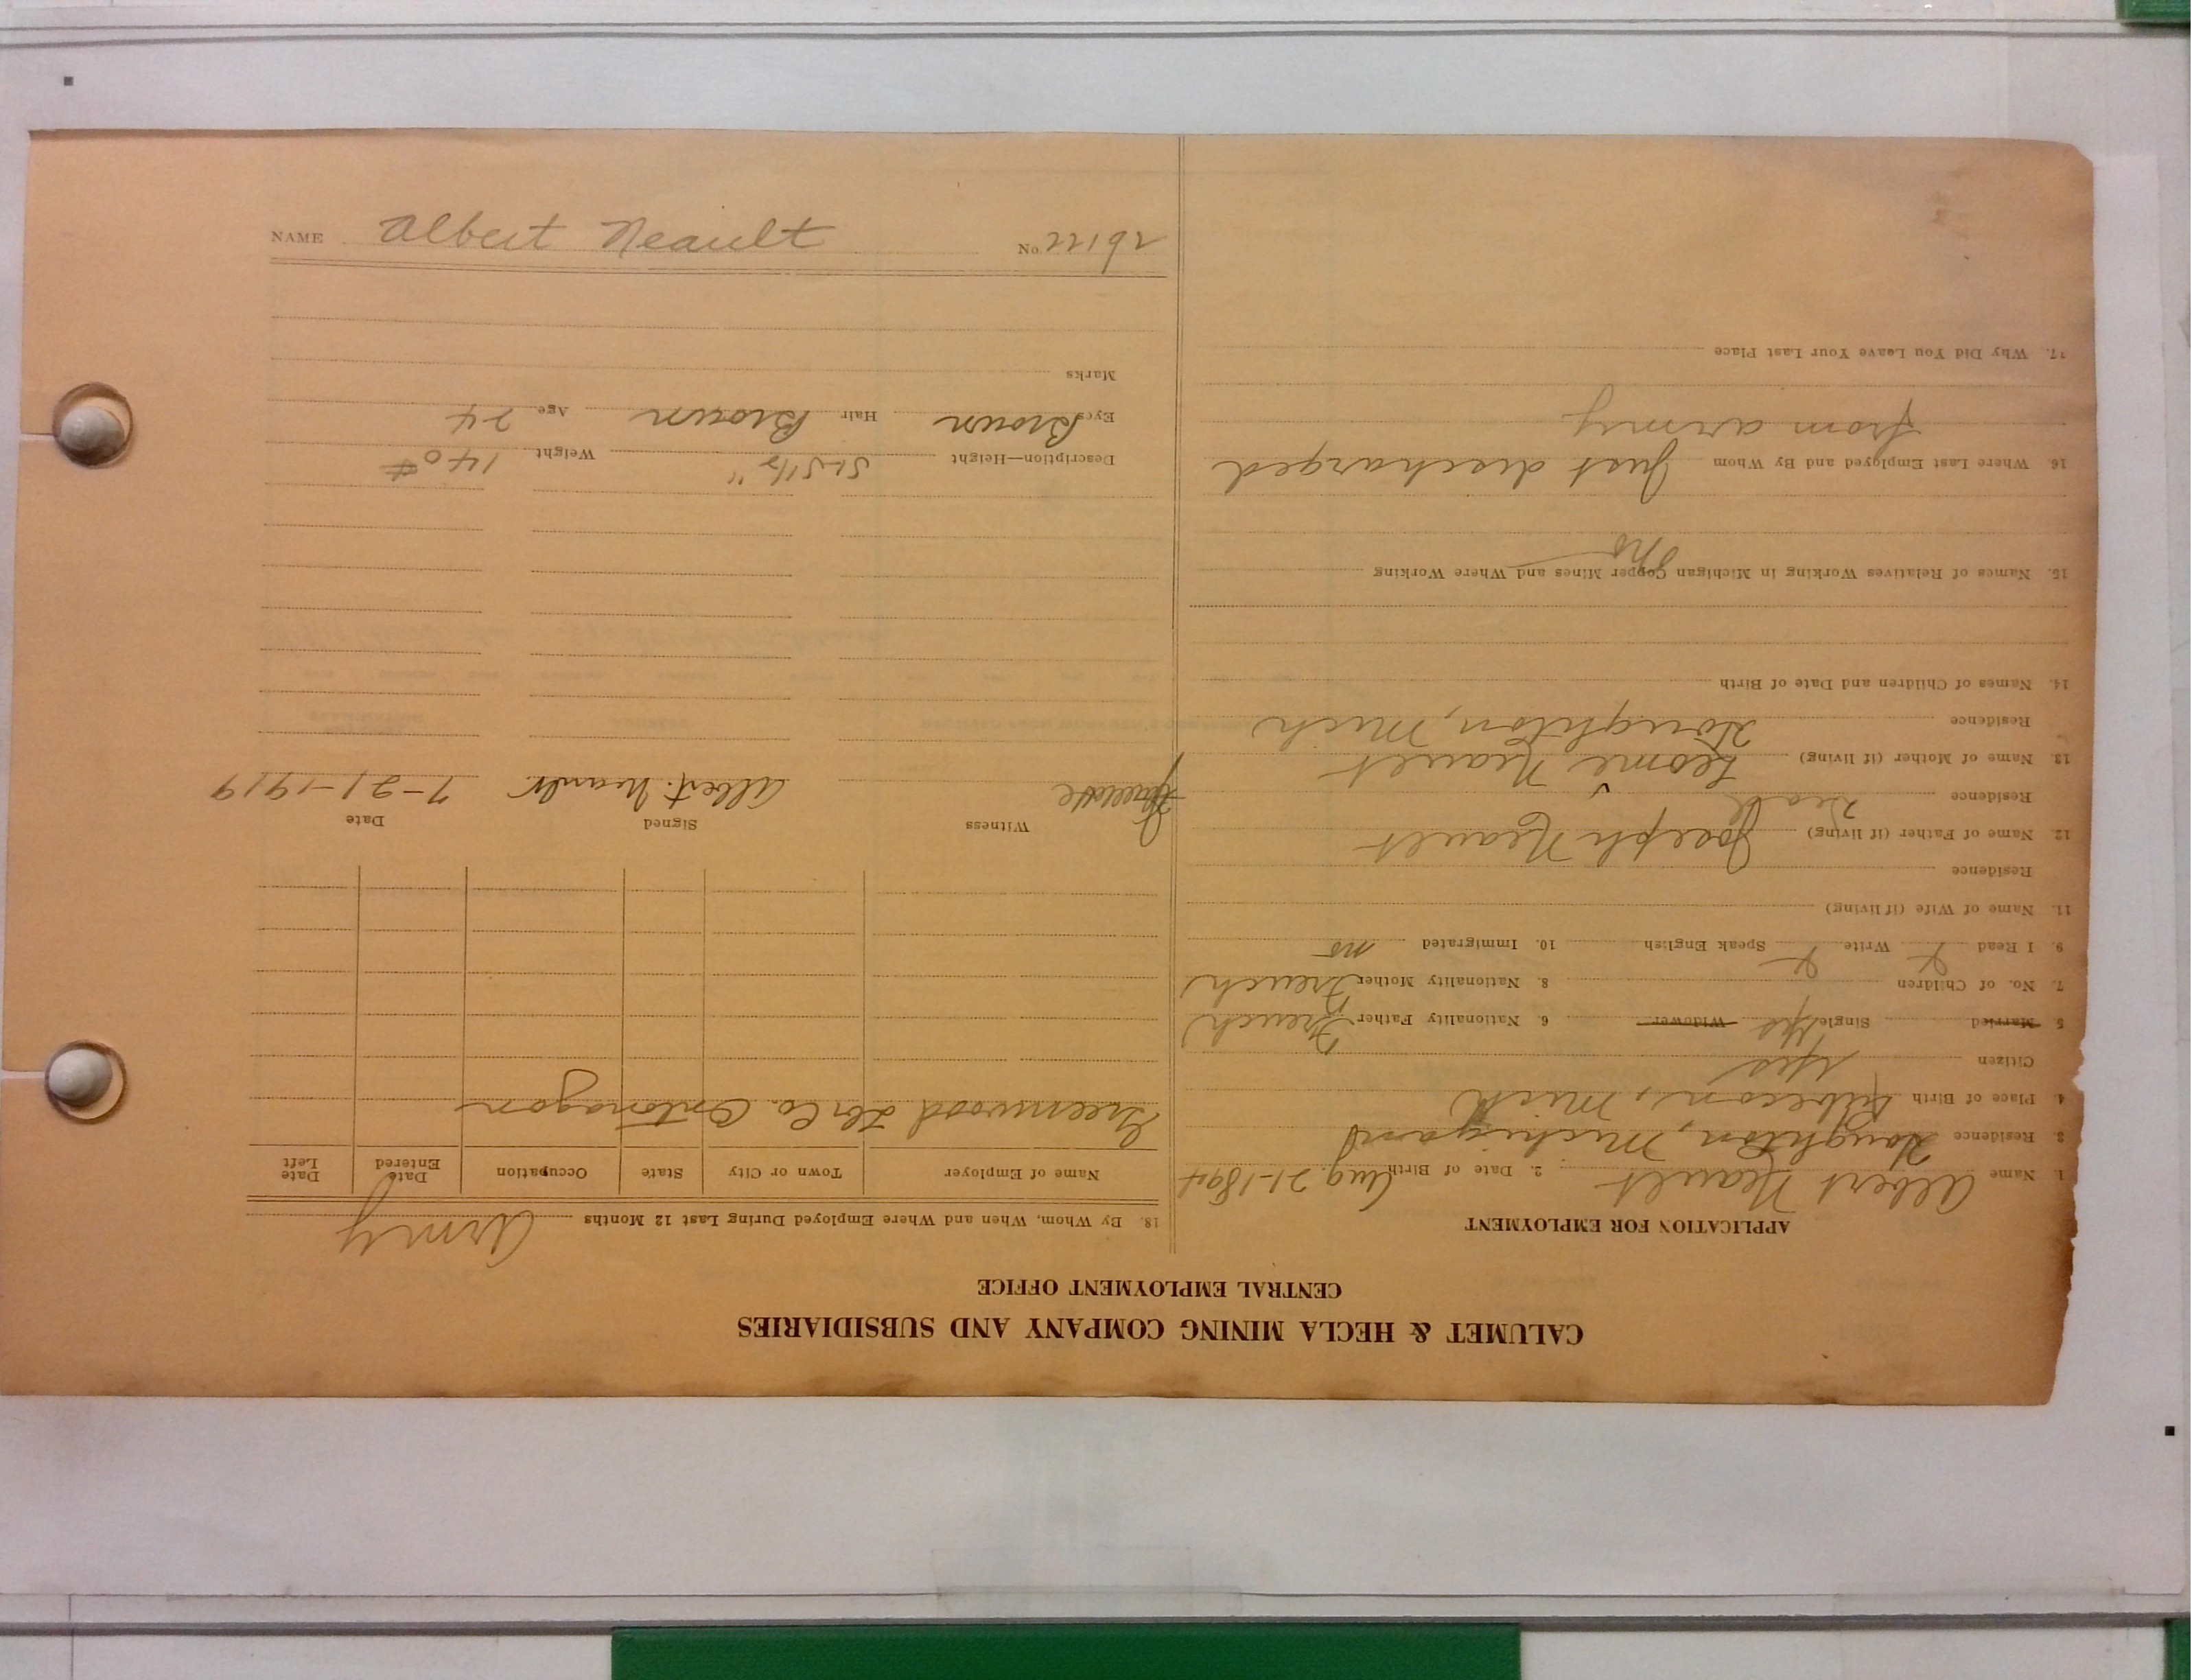 CALUMET & HECLA MINING COMPANY AND SUBSIDIARIES
CENTRAL EMPLOYMENT OFFICE
APPLICATION FOR EMPLOYMENT
1. Name Albert Neault 2. Date of Birth Aug. 21-1894
3 Residence Houghton, Michigan
4. Place of Birth , Mich
Citizen Yes
5 Married Single Yes Widower 6. Nationality Father French
7. No. of Children 8. Nationality Mother French
9. I Read X Write X Speak English 10. Immigrated no
11. Name of Wife (if living)
Residence
12. Name of Father (if living) Joseph Neault
Residence Dead
13. Name of Mother (if living) Neault
Residence Houghton, Mich
14. Names of Children and Date of Birth
15. Names of Relatives Working in Michigan Copper Mines and Where Working
No
16. Where Last Employed and By Whom Just discharged
from army
17. Why Did You Leave Your Last Place
18. By Whom, When and Where Employed During Last 12 Months Army
Name of Employer Town or City State Occupation Date Entered Date Left
Greenwood Lbr Co. Ontonagon
Witness Signed Date
Albert Neault 7-21-1919
Description—Height 5'-5 1/2" Weight 140#
Eyes Brown Hair Brown Age 24
Marks
NAME Albert Neault No.